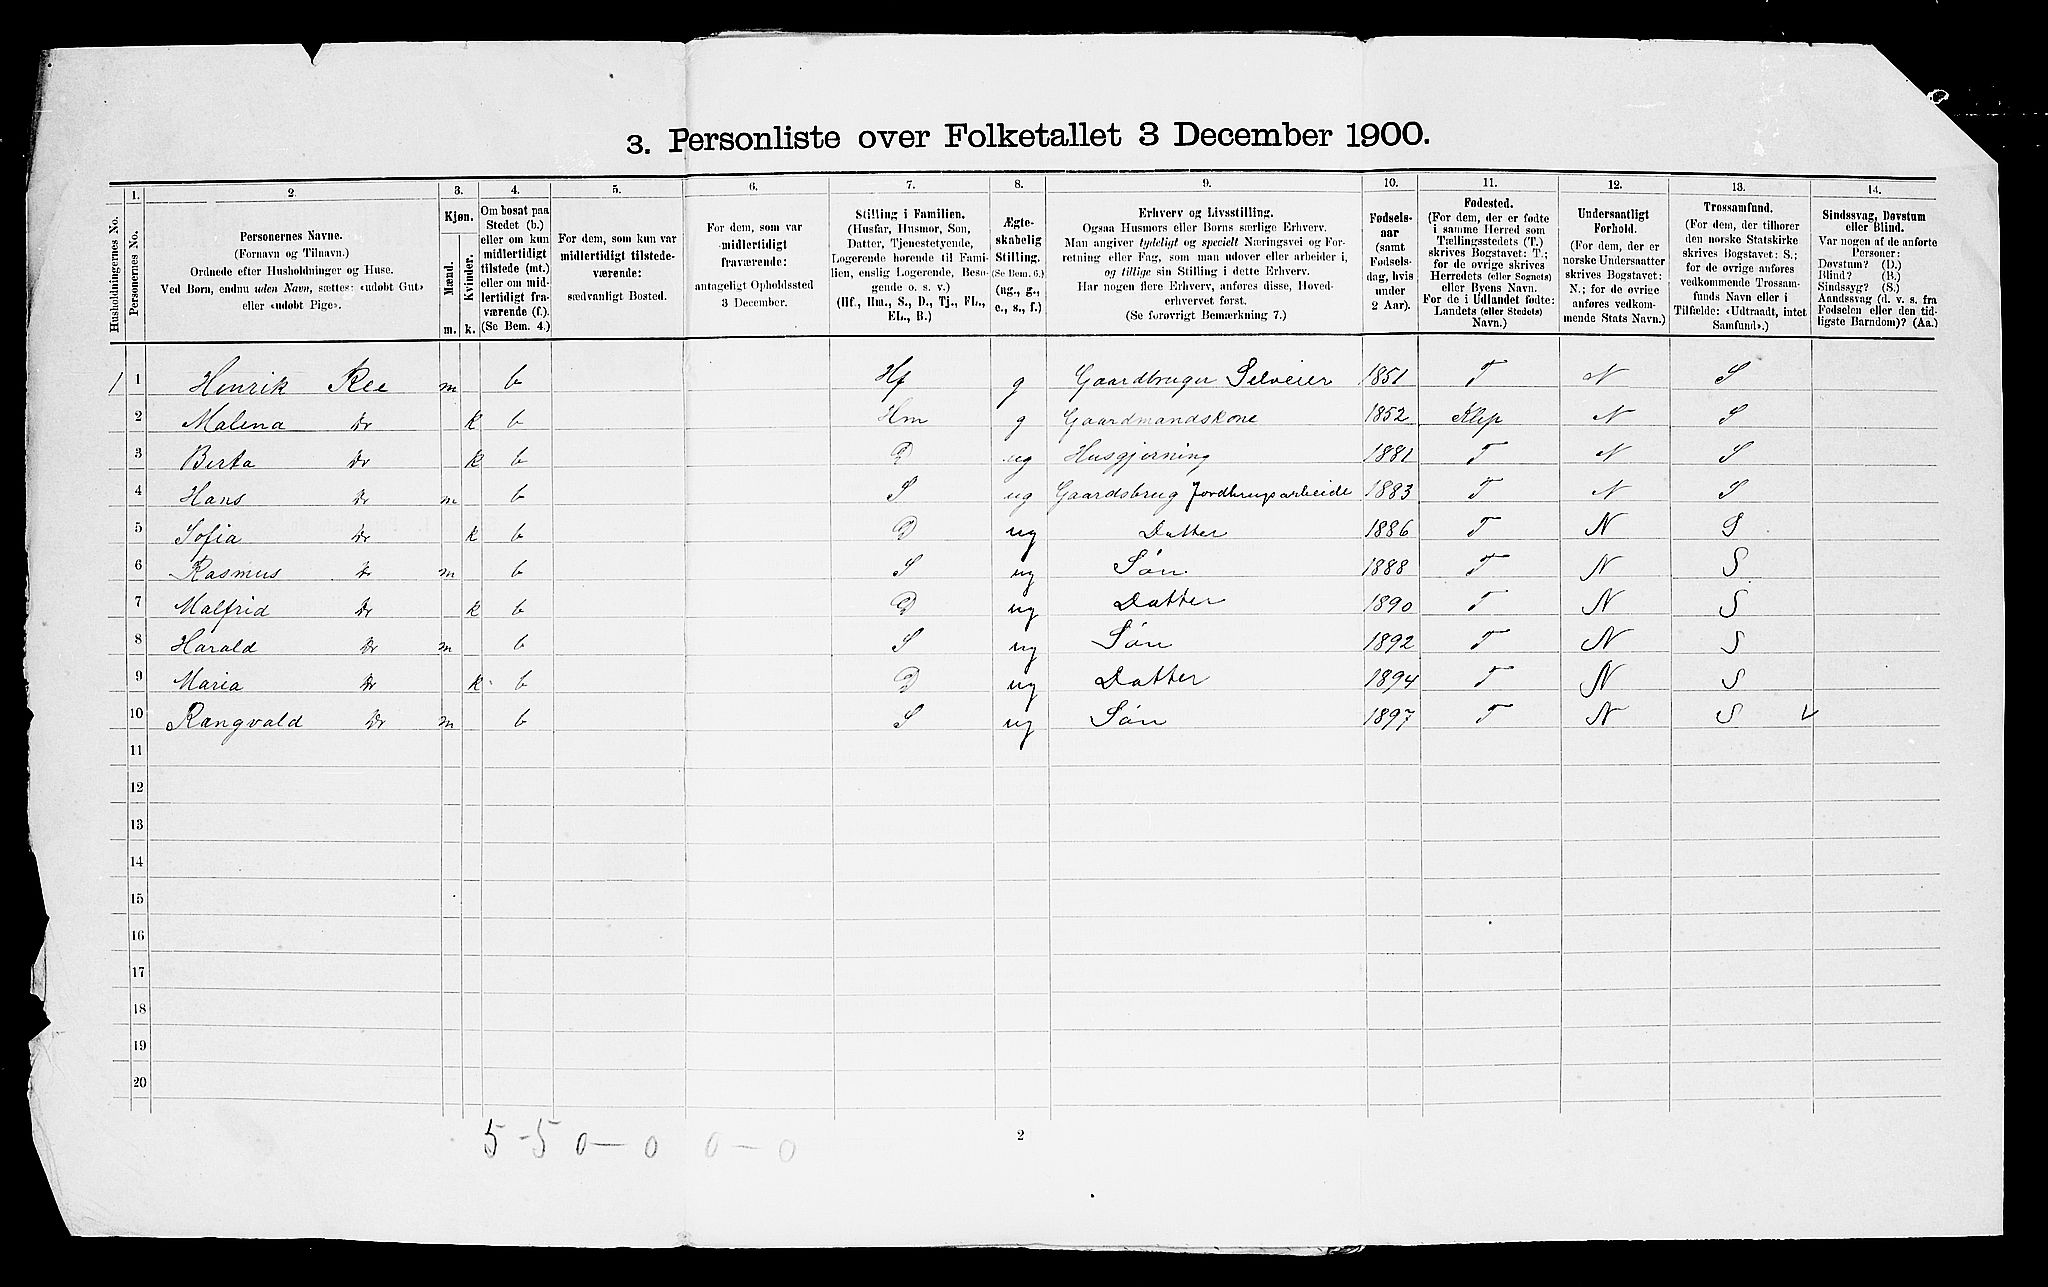 3. Personliste over Folketallet 3 December 1900.
1. 2. 3. 4. 5. 6. 7. 8. 9. 10. 11. 12. 13. 14.
Husholdningernes No.
Personernes No.
Personernes Navne.
(Fornavn og Tilnavn.)
Ordnede efter Husholdninger og Huse.
Ved Børn, endnu uden Navn, sættes: «udøbt Gut»
eller «udøbt Pige».
Kjøn.
Mænd.
Kvinder.
m. k.
Om bosat paa
Stedet (b.)
eller om kun
midlertidigt
tilstede (mt.)
eller om mid-
lertidigt fra-
værende (f.).
(Se Bem. 4.)
For dem, som kun var
midlertidigt tilstede-
værende:
sædvanligt Bosted.
For dem, som var
midlertidigt
fraværende:
antageligt Opholdssted
3 December.
Stilling i Familien.
(Husfar, Husmor, Søn,
Datter, Tjenestetyende,
Logerende hørende til Fami-
lien, enslig Logerende, Besø-
gende o. s. v.)
(Hf., Hm., S., D., Tj., FL.,
EL., B.)
Ægte-
skabelig
Stilling.
(Se Bem. 6.)
(ug., g.,
e., s., f.)
Erhverv og Livsstilling.
Ogsaa Husmors eller Børns særlige Erhverv.
Man angiver tydeligt og specielt Næringsvei og For-
retning eller Fag, som man udøver eller arbeider i,
og tillige sin Stilling i dette Erhverv.
Har nogen flere Erhverv, anføres disse, Hoved-
erhvervet først.
(Se forøvrigt Bemærkning 7.)
Fødsels-
aar
(samt
Fødsels-
dag, hvis
under
2 Aar).
Fødested.
(For dem, der er fødte
i samme Herred som
Tællingsstedets (T.)
skrives Bogstavet: T.;
for de øvrige skrives
Herredets (eller Sognets)
eller Byens Navn.
For de i Udlandet fødte:
Landets (eller Stedets)
Navn.)
Undersaatligt
Forhold.
(For dem, der er
norske Undersaatter
skrives Bogstavet:
N.; for de øvrige
anføres vedkom-
mende Stats Navn.)
Trossamfund.
(For dem, der tilhører
den norske Statskirke
skrives Bogstavet: S.;
for de øvrige anføres
vedkommende Trossam-
funds Navn eller i
Tilfælde: «Udtraadt, intet
Samfund».)
Sindssvag, Døvstum
eller Blind.
Var nogen af de anførte
Personer:
Døvstum? (D.)
Blind? (B.)
Sindssyg? (S.)
Aandssvag (d. v. s. fra
Fødselen eller den tid-
ligste Barndom)? (Aa.)
1 1 Henrik Ree m b Hf g Gaardbruger Selveier 1851 T N S
2 Malena Do k b Hm g Gaardmandskone 1852 Klep N S
3 Berta Do k b D ug Husgjerning 1881 T N S
4 Hans Do m b S ug Gaardsbrug Jordbrugsarbeide 1883 T N S
5 Sofia Do k b D ug Datter 1886 T N S
6 Rasmus Do m b S ug Søn. 1888 T N S
7 Malfrid Do k b D ug Datter 1890 T N S
8 Harald Do m b S ug Søn 1892 T N S
9 Maria Do k b D ug Datter 1894 T N S
10 Rangvald Do m b S ug Søn 1897 T N S
11
12
13
14
15
16
17
18
19
20
5 - 5 0 — 0 0 — 0
2